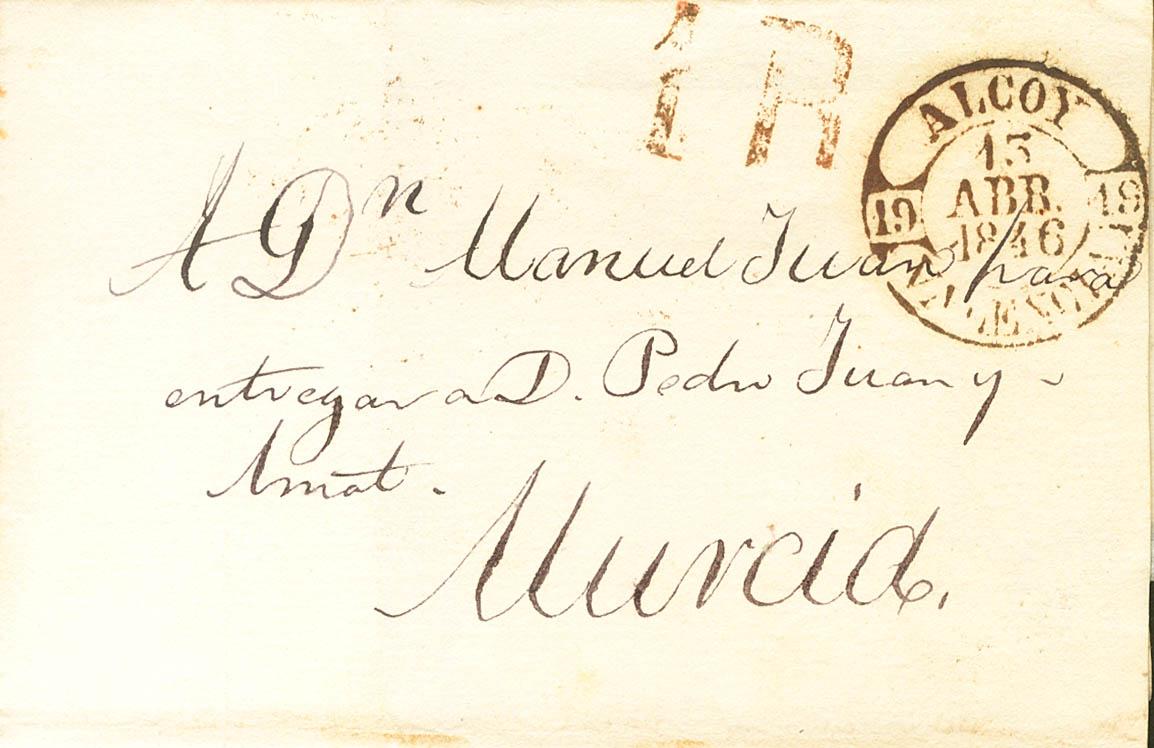 1 R
ALCOY
15
ABR.
1846
19 19
VALENCIA
A Dn Manuel Juan para
entregar a D. Pedro Juan y
Amat.
Murcia.